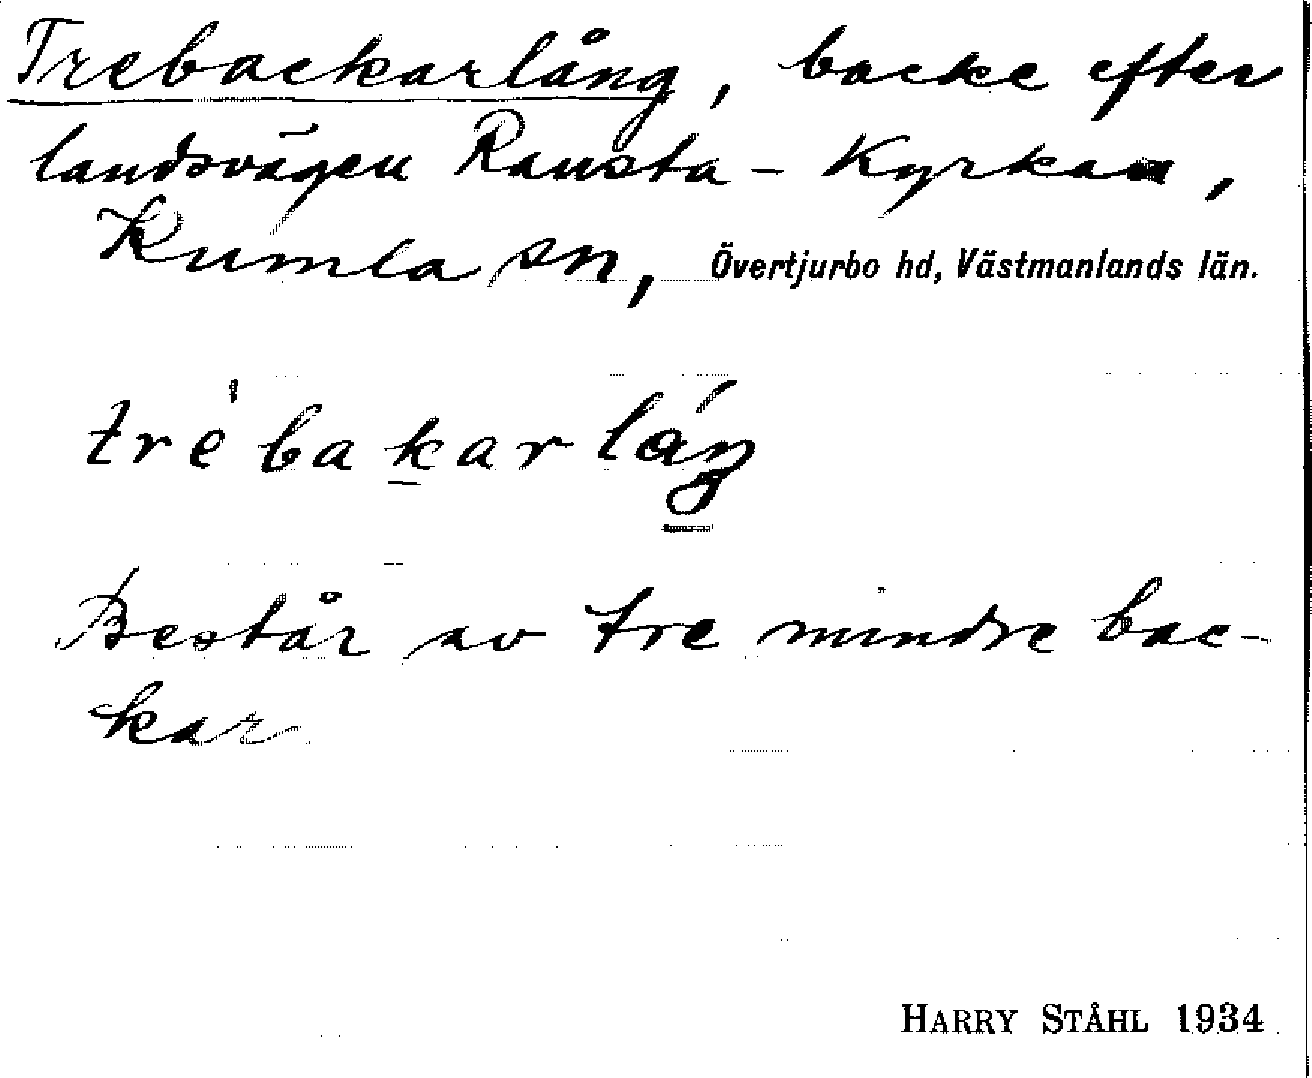 Trebackarlång, backe efter
landsvägen Ransta - Kyrkan,
Kumla sn, Övertjurbo hd, Västmanlands län.
tre̍bakarláŋ
Består av tre mindre bac-
kar
HARRY STÅHL 1934